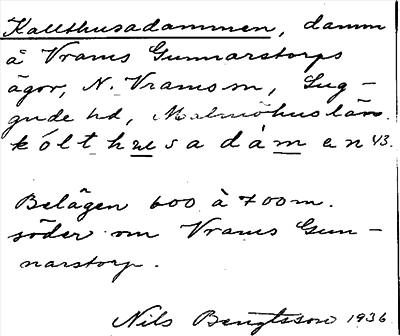 Kallthusadammen, damm
å Vrams Gunnarstorps
ägor, N. Vrams sn, Lug-
gude hd, Malmöhus län.
kólthusadámen 43.
Belägen 600 à 700 m.
söder om Vrams Gun-
narstorp.
Nils Bengtsson 1936